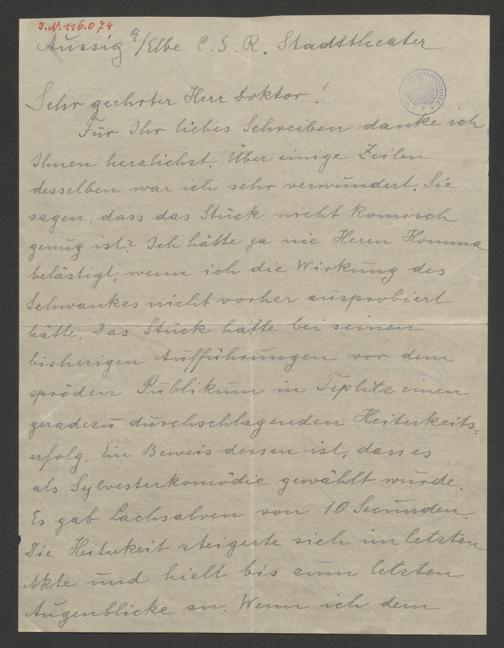 J.N. 116.074
Aussig a/Elbe Č. S. R. Stadttheater
Sehr geehrter Herr Doktor!
Für Ihr liebes Schreiben danke ich
Ihnen herzlichst. Über einige Zeilen
desselben war ich sehr verwundert. Sie
sagen, dass das Stück nicht komisch
genug ist? Ich hätte ja nie Herrn Homma
belästigt, wenn ich die Wirkung des
Schwankes nicht vorher ausprobiert
hätte. Das Stück hatte bei seinen
bisherigen Aufführungen vor dem
spröden Publikum in Teplitz einen
geradezu durchschlagenden Heiterkeits=
erfolg. Ein Beweis dessen ist, dass es
als Sylvesterkomödie gewählt wurde.
Es gab Lachsalven von 10 Secunden.
Die Heiterkeit steigerte sich im letzten
Akte und hielt bis zum letzten
Augenblicke an. Wenn ich dem